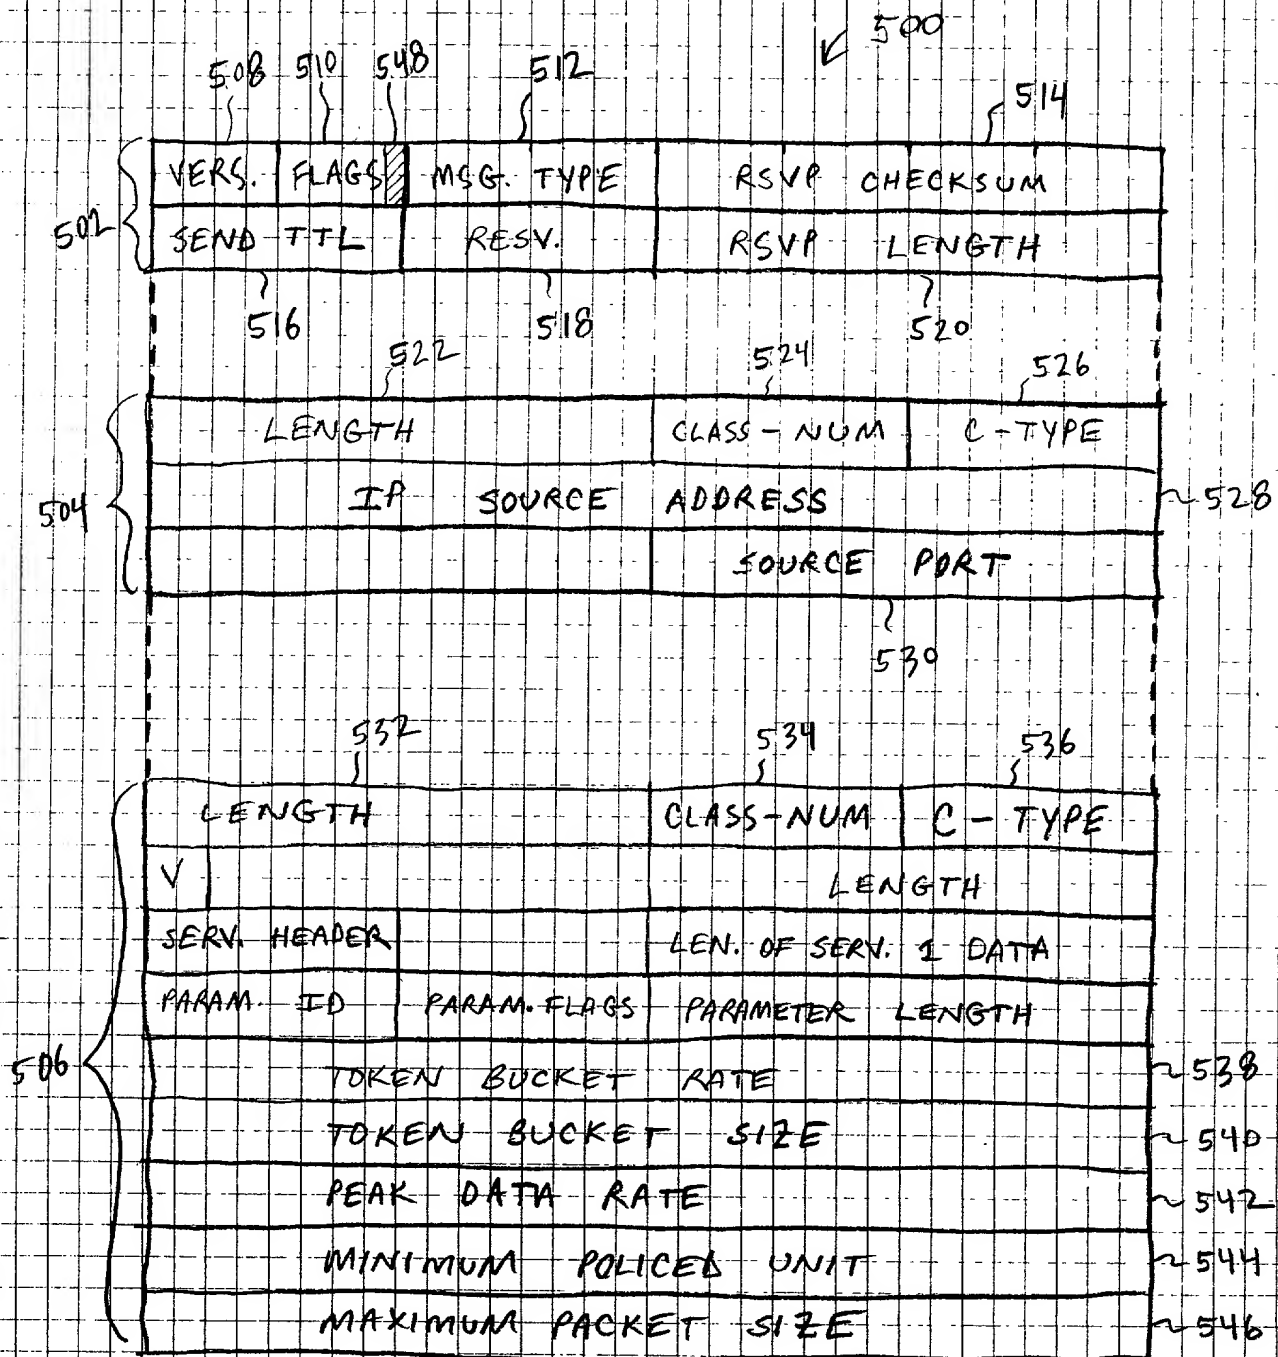 500
508 510 548 512 514
VERS. FLAGS MSG. TYPE RSVP CHECKSUM
502
SEND TTL RESV. RSVP LENGTH
516 518 520
522 524 526
LENGTH CLASS-NUM C-TYPE
504
IP SOURCE ADDRESS 528
SOURCE PORT
530
532 534 536
LENGTH CLASS-NUM C-TYPE
V LENGTH
SERV. HEADER LEN. OF SERV. 1 DATA
PARAM. ID PARAM. FLAGS PARAMETER LENGTH
506
TOKEN BUCKET RATE 538
TOKEN BUCKET SIZE 540
PEAK DATA RATE 542
MINIMUM POLICED UNIT 544
MAXIMUM PACKET SIZE 546